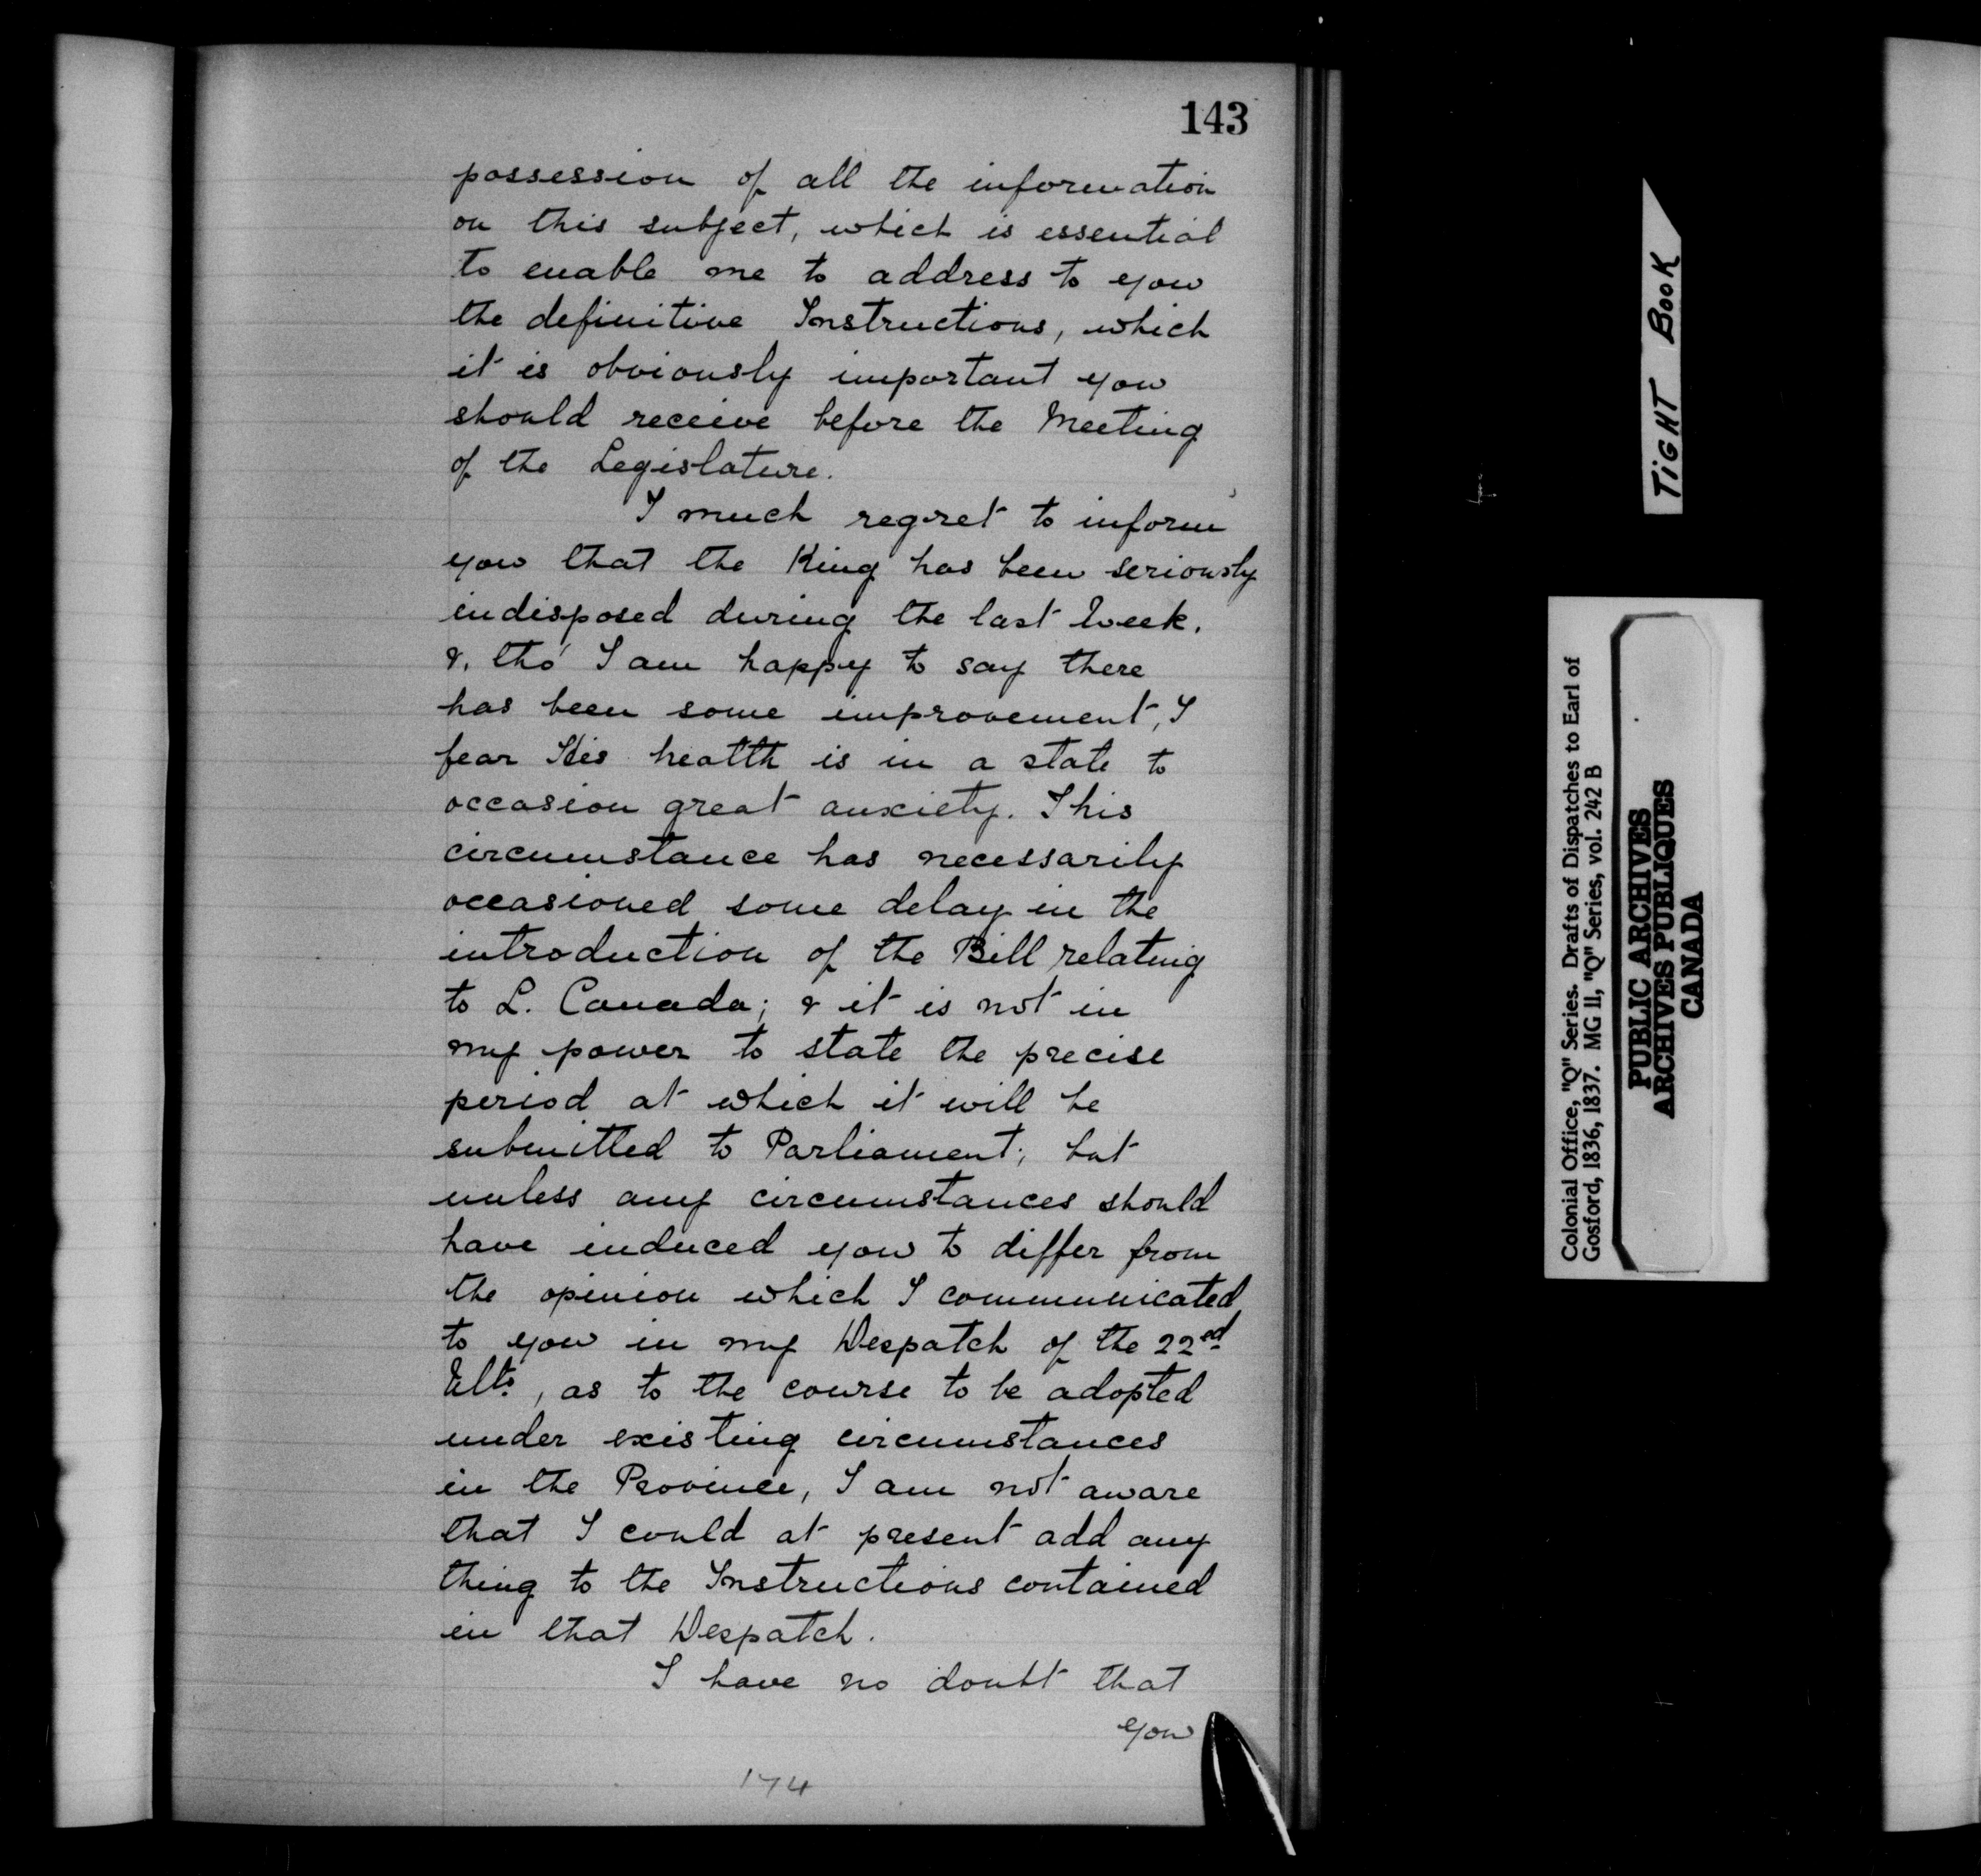 143
possession of all the information
on this subject, which is essential
to enable me to address to you
the definitive Instructions, which
it is obviously important you
should receive before the Meeting
of the Legislature.
I much regret to inform
you that the King has been seriously
indisposed during the last week.
&, tho' I am happy to say there
has been some improvement, I
fear His health is in a state to
occasion great anxiety. This
circumstance has necessarily
occasioned some delay in the
introduction of the Bill relating
to L. Canada; & it is not in
my power to state the precise
period at which it will be
submitted to Parliament; but
unless any circumstances should
have induced you to differ from
the opinion which I communicated
to you in my Despatch of the 22ed
Ulto, as to the course to be adopted
under existing circumstances
in the Province, I am not aware
that I could at present add any
thing to the Instructions contained
in that Despatch.
I have no doubt that
you
174
TIGHT BOOK
Colonial Office, "Q" Series. Drafts of Dispatches to Earl of
Gosford, 1836, 1837. MG 11, "Q" Series, vol. 242 B
PUBLIC ARCHIVES
ARCHIVES PUBLIQUES
CANADA